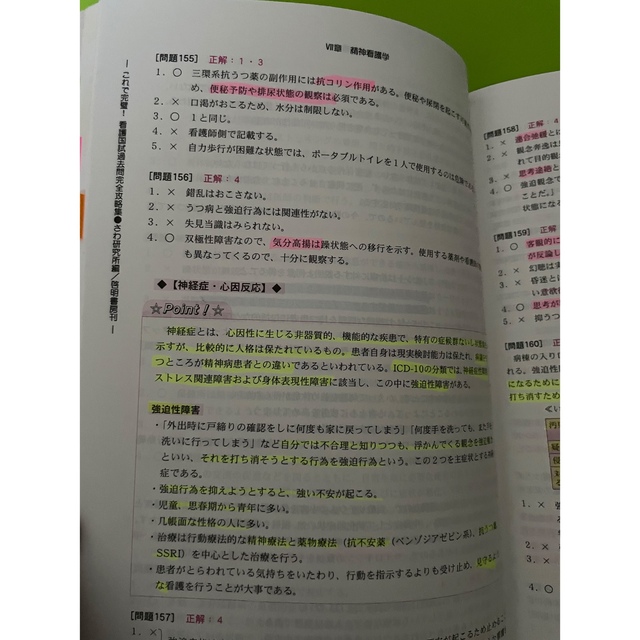 Ⅶ章 精神看護学
[問題155] 正解：1・3
1．○ 三環系抗うつ薬の副作用には抗コリン作用がある。便秘や尿閉を起こす
め、便秘予防や排尿状態の観察は必須である。
2．× 口渇がおこるため、水分は制限しない。
3．○ 1と同じ。
4．× 看護師側で記載する。
5．× 自力歩行が困難な状態では、ポータブルトイレを1人で使用するのは危険
[問題156] 正解：4
1．× 錯乱はおこさない。
2．× うつ病と強迫行為には関連性がない。
3．× 失見当識はみられない。
4．○ 双極性障害なので、気分高揚は躁状態への移行を示す。使用する薬剤や
も異なってくるので、十分に観察する。
◆【神経症・心因反応】◆
☆Point！☆
神経症とは、心因性に生じる非器質的、機能的な疾患で、特有の症候群ないし
示すが、比較的に人格は保たれているもの。患者自身は現実検討能力は保たれ、
つところが精神病患者との違いであるといわれている。ICD-10の分類では、神経症性
ストレス関連障害および身体表現性障害に該当し、この中に強迫性障害がある。
強迫性障害
・「外出時に戸締りの確認をしに何度も家に戻ってしまう」「何度手を洗っても、また
洗いに行ってしまう」など自分では不合理と知りつつも、浮かんでくる観念を強迫観念
といい、それを打ち消そうとする行為を強迫行為という。この2つを主症状とする
症である。
・強迫行為を抑えようとすると、強い不安が起こる。
・児童、思春期から青年に多い。
・几帳面な性格の人に多い。
・治療は行動療法的な精神療法と薬物療法（抗不安薬（ベンゾジアゼピン系）、抗うつ薬
SSRI）を中心とした治療を行う。
・患者がとらわれている気持ちをいたわり、行動を指示するよりも受け止め、見守るよう
な看護を行うことが大事である。
[問題157] 正解：4
1．×
― これで完璧！ 看護国試過去問完全攻略集●さわ研究所編／啓明書房刊 ―
[問題158] 正解：4
1．× 連合弛緩とは
2．× 観念奔逸は
れて目的観
3．× 強迫観念で
ことだ。」
状態になる
[問題159] 正解
1．○ 客観的に
が反論し
2．× 幻聴は実
3．× 昏迷とは
い意欲
4．○ 思考が
5．× 抑うつ
[問題160] 正
病棟の入り
になるために
打ち消すため